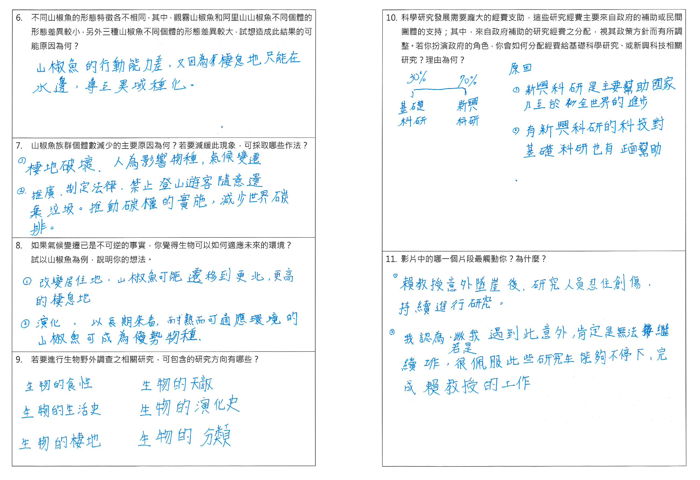 6. 不同山椒魚的形態特徵各不相同,其中,觀霧山椒魚和阿里山山椒魚不同個體的
形態差異較小,另外三種山椒魚不同個體的形態差異較大,試想造成此結果的可
能原因為何?
山椒魚的行動能力差,又因為棲息地只能在
水邊,導正異域種化。
7. 山椒魚族群個體數減少的主要原因為何?若要減緩此現象,可採取哪些作法?
① 棲地破壞、人為影響物種,氣候變遷
② 推廣、制定法律,禁止登山遊客隨意還
棄垃圾。推動碳權的實施,減少世界碳
排。
8. 如果氣候變遷已是不可逆的事實,你覺得生物可以如何適應未來的環境?
試以山椒魚為例,說明你的想法。
① 改變居住地,山椒魚可能遷移到更北,更高
的棲息地
② 演化,以長期來看,耐熱而可適應環境的
山椒魚可成為優勢物種.
9. 若要進行生物野外調查之相關研究,可包含的研究方向有哪些?
生物的食性 生物的天敵
生物的生活史 生物的演化史
生物的棲地 生物的分類
10. 科學研究發展需要龐大的經費支助,這些研究經費主要來自政府的補助或民間
團體的支持;其中,來自政府補助的研究經費之分配,視其政策方針而有所調
整。若你扮演政府的角色,你會如何分配經費給基礎科學研究、或新興科技相關
研究?理由為何?
30% 70% 原因
基礎科研 新興科研
① 新興科研是主要幫助國家
乃至於和全世界的進步
② 有新興科研的科技對
基礎科研也有正面幫助
11. 影片中的哪一個片段最觸動你?為什麼?
① 賴教授意外墜崖後,研究人員忍住創傷,
持續進行研究。
② 我認為,若是我遇到此意外,肯定是無法繼
續下去,很佩服此些研究生能夠不停下,完
成賴教授的工作